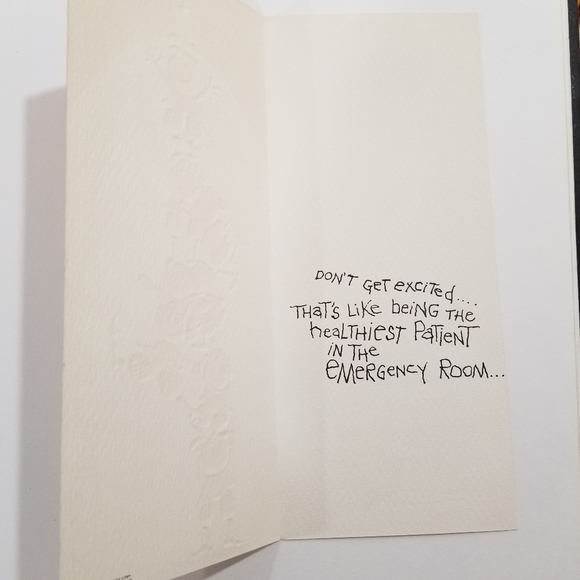 DON'T GET EXCITED....
THAT'S LIKE BEING THE
HEALTHIEST PATIENT
IN THE
EMERGENCY ROOM...